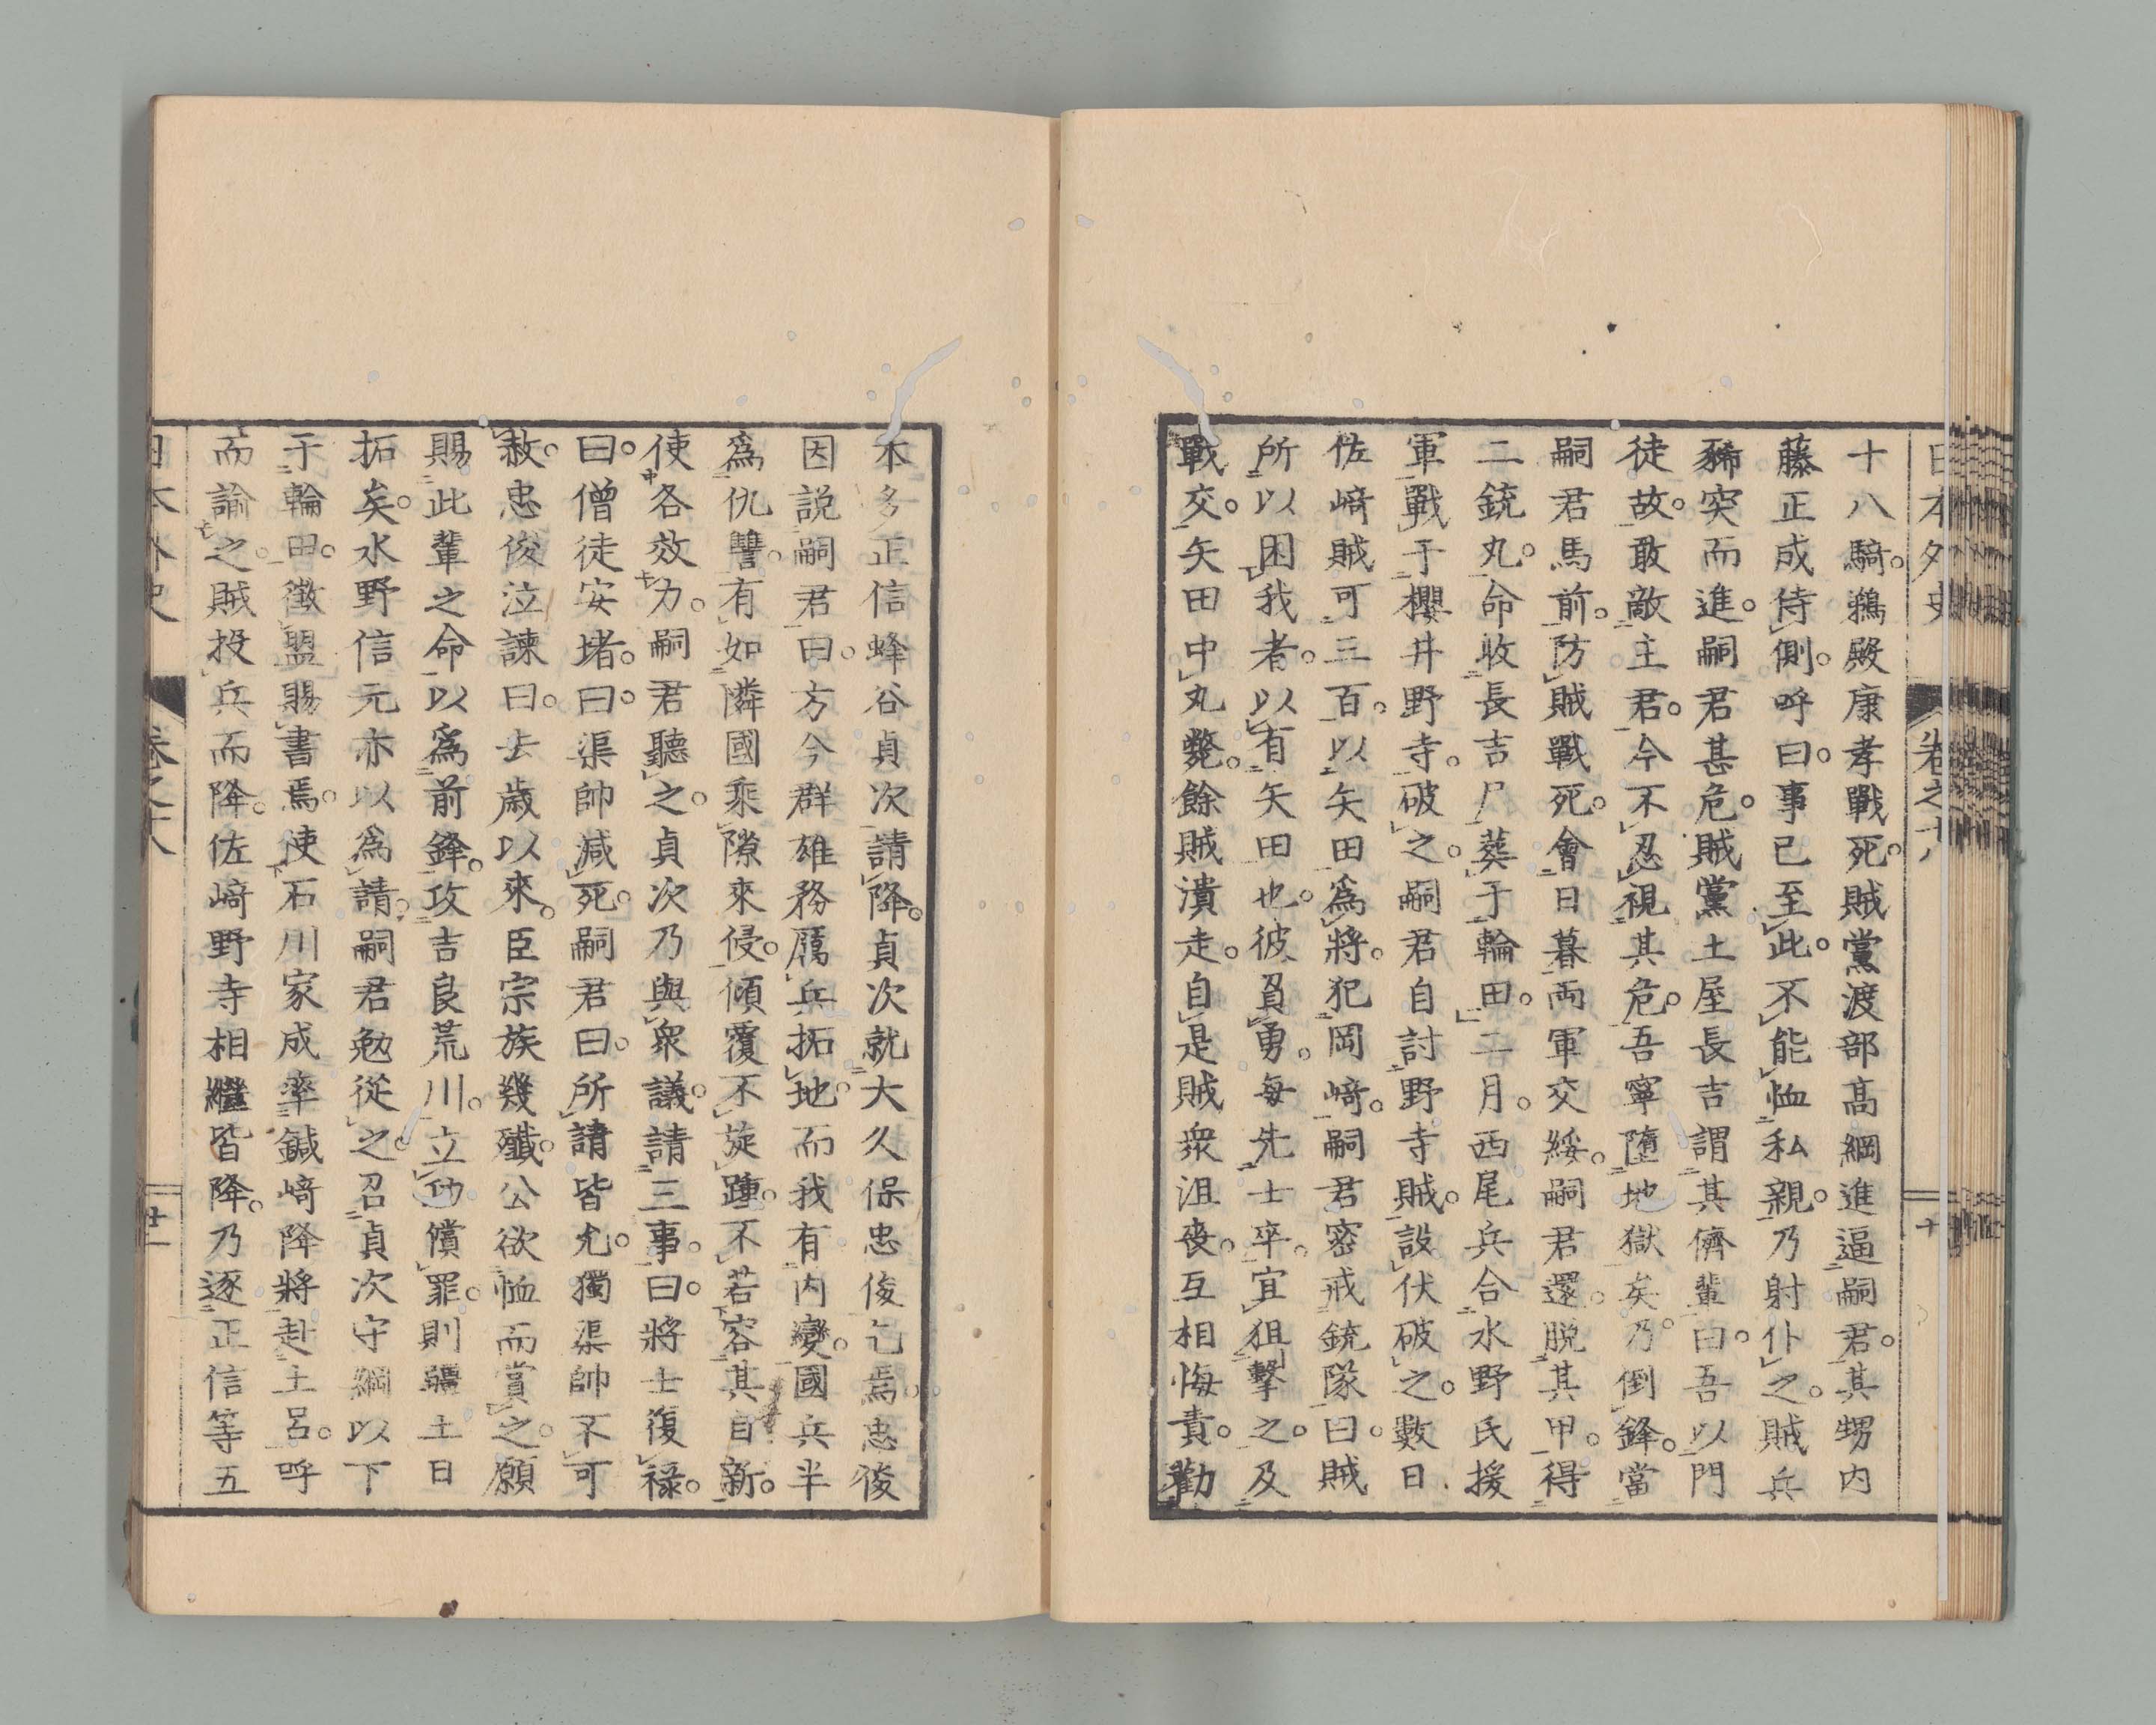 日本外史 卷之十八
十八騎。鵜殿康孝戰死。賊黨渡部高綱進逼嗣君。其甥内
藤正成侍側。呼曰。事已至此。不能恤私親。乃射仆之。賊兵
豨突而進。嗣君甚危。賊黨土屋長吉謂其儕輩曰。吾以門
徒故。敢敵主君。今不忍視其危。吾寧墮地獄矣。乃倒鋒。當
嗣君馬前。防賊戰死。會日暮。兩軍交綏。嗣君還。脱其甲。得
二銃丸。命收長吉尸。葬于輪田。二月。西尾兵合水野氏援
軍。戰于櫻井野寺。破之。嗣君自討野寺賊。設伏破之。數日
佐﨑賊可三百。以矢田爲將。犯岡﨑。嗣君密戒銃隊曰。賊
所以困我者。以有矢田也。彼負勇。毎先士卒。宜狙擊之。及
戰交。矢田中丸斃。餘賊潰走。自是賊衆沮喪。互相悔責。勸
本多正信蜂谷貞次請降。貞次就大久保忠俊乞焉。忠俊
因説嗣君曰。方今群雄務厲兵拓地。而我有内變。國兵半
爲仇讐。有如隣國乘隙來侵。傾覆不旋踵。不若容其自新。
使各效力。嗣君聽之。貞次乃與衆議。請三事。曰。將士復祿。
曰。僧徒安堵。曰。渠帥減死。嗣君曰。所請皆允。獨渠帥不可
赦。忠俊泣諫曰。去歳以來。臣宗族幾殲。公欲恤而賞之。願
賜此輩之命。以爲前鋒。攻吉良荒川。立功償罪。則疆土日
拓矣。水野信元亦以爲請。嗣君勉從之。召貞次守綱以下
于輪田。徴盟賜書焉。使石川家成率鍼﨑降將赴土呂。呼
而諭之。賊投兵而降。佐﨑野寺相繼皆降。乃逐正信等五
日本外史 卷之十八 廿一